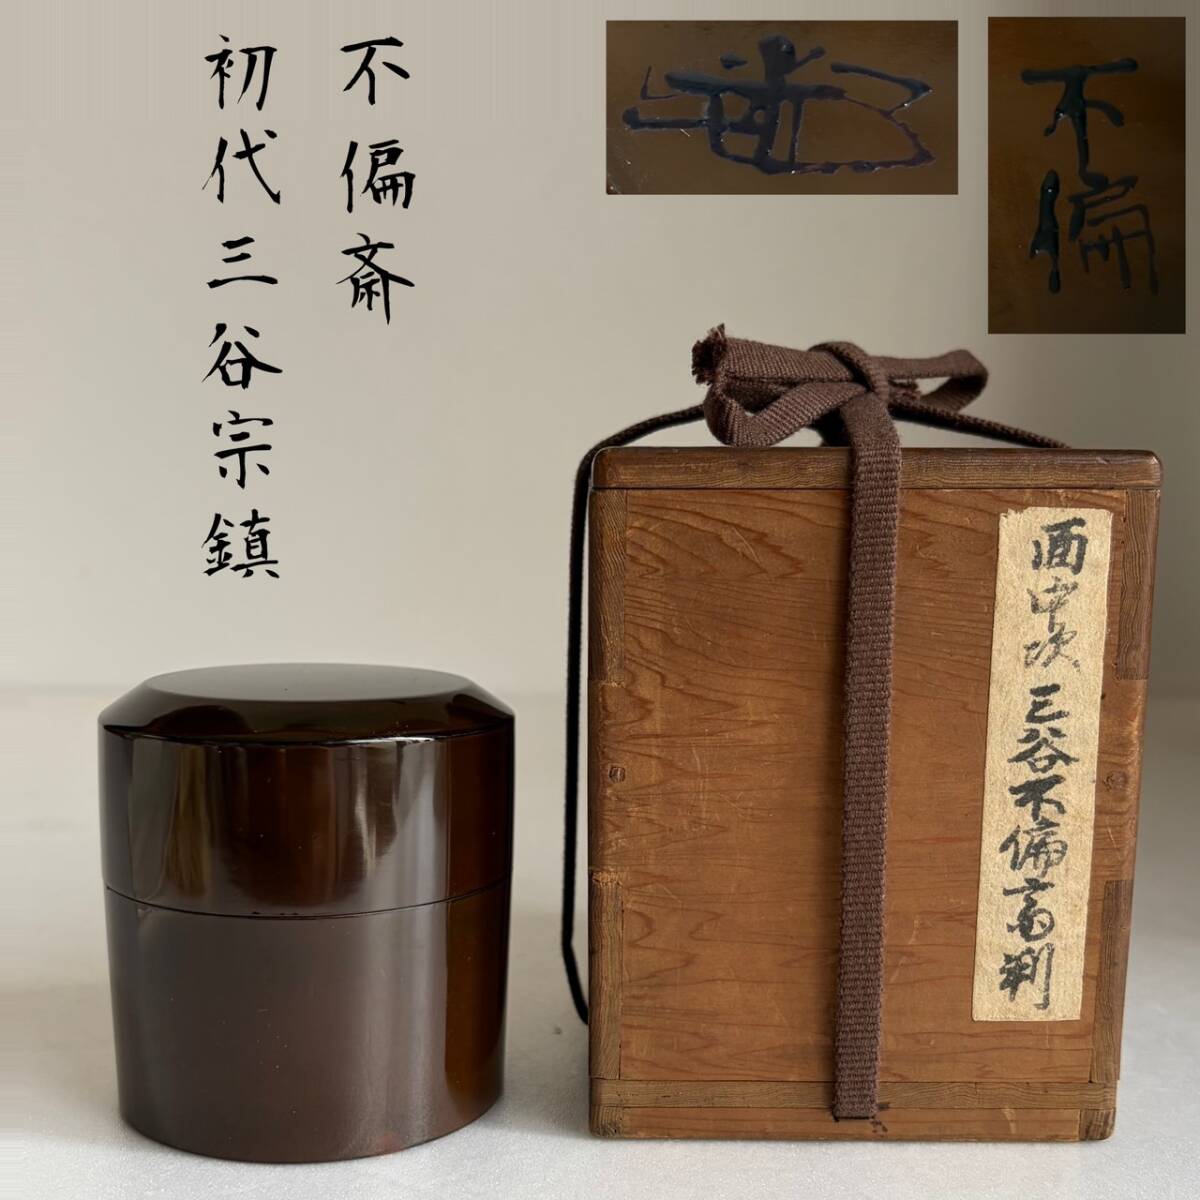 不偏斎
初代三谷宗鎮
不偏
面中次 三谷不偏斎判